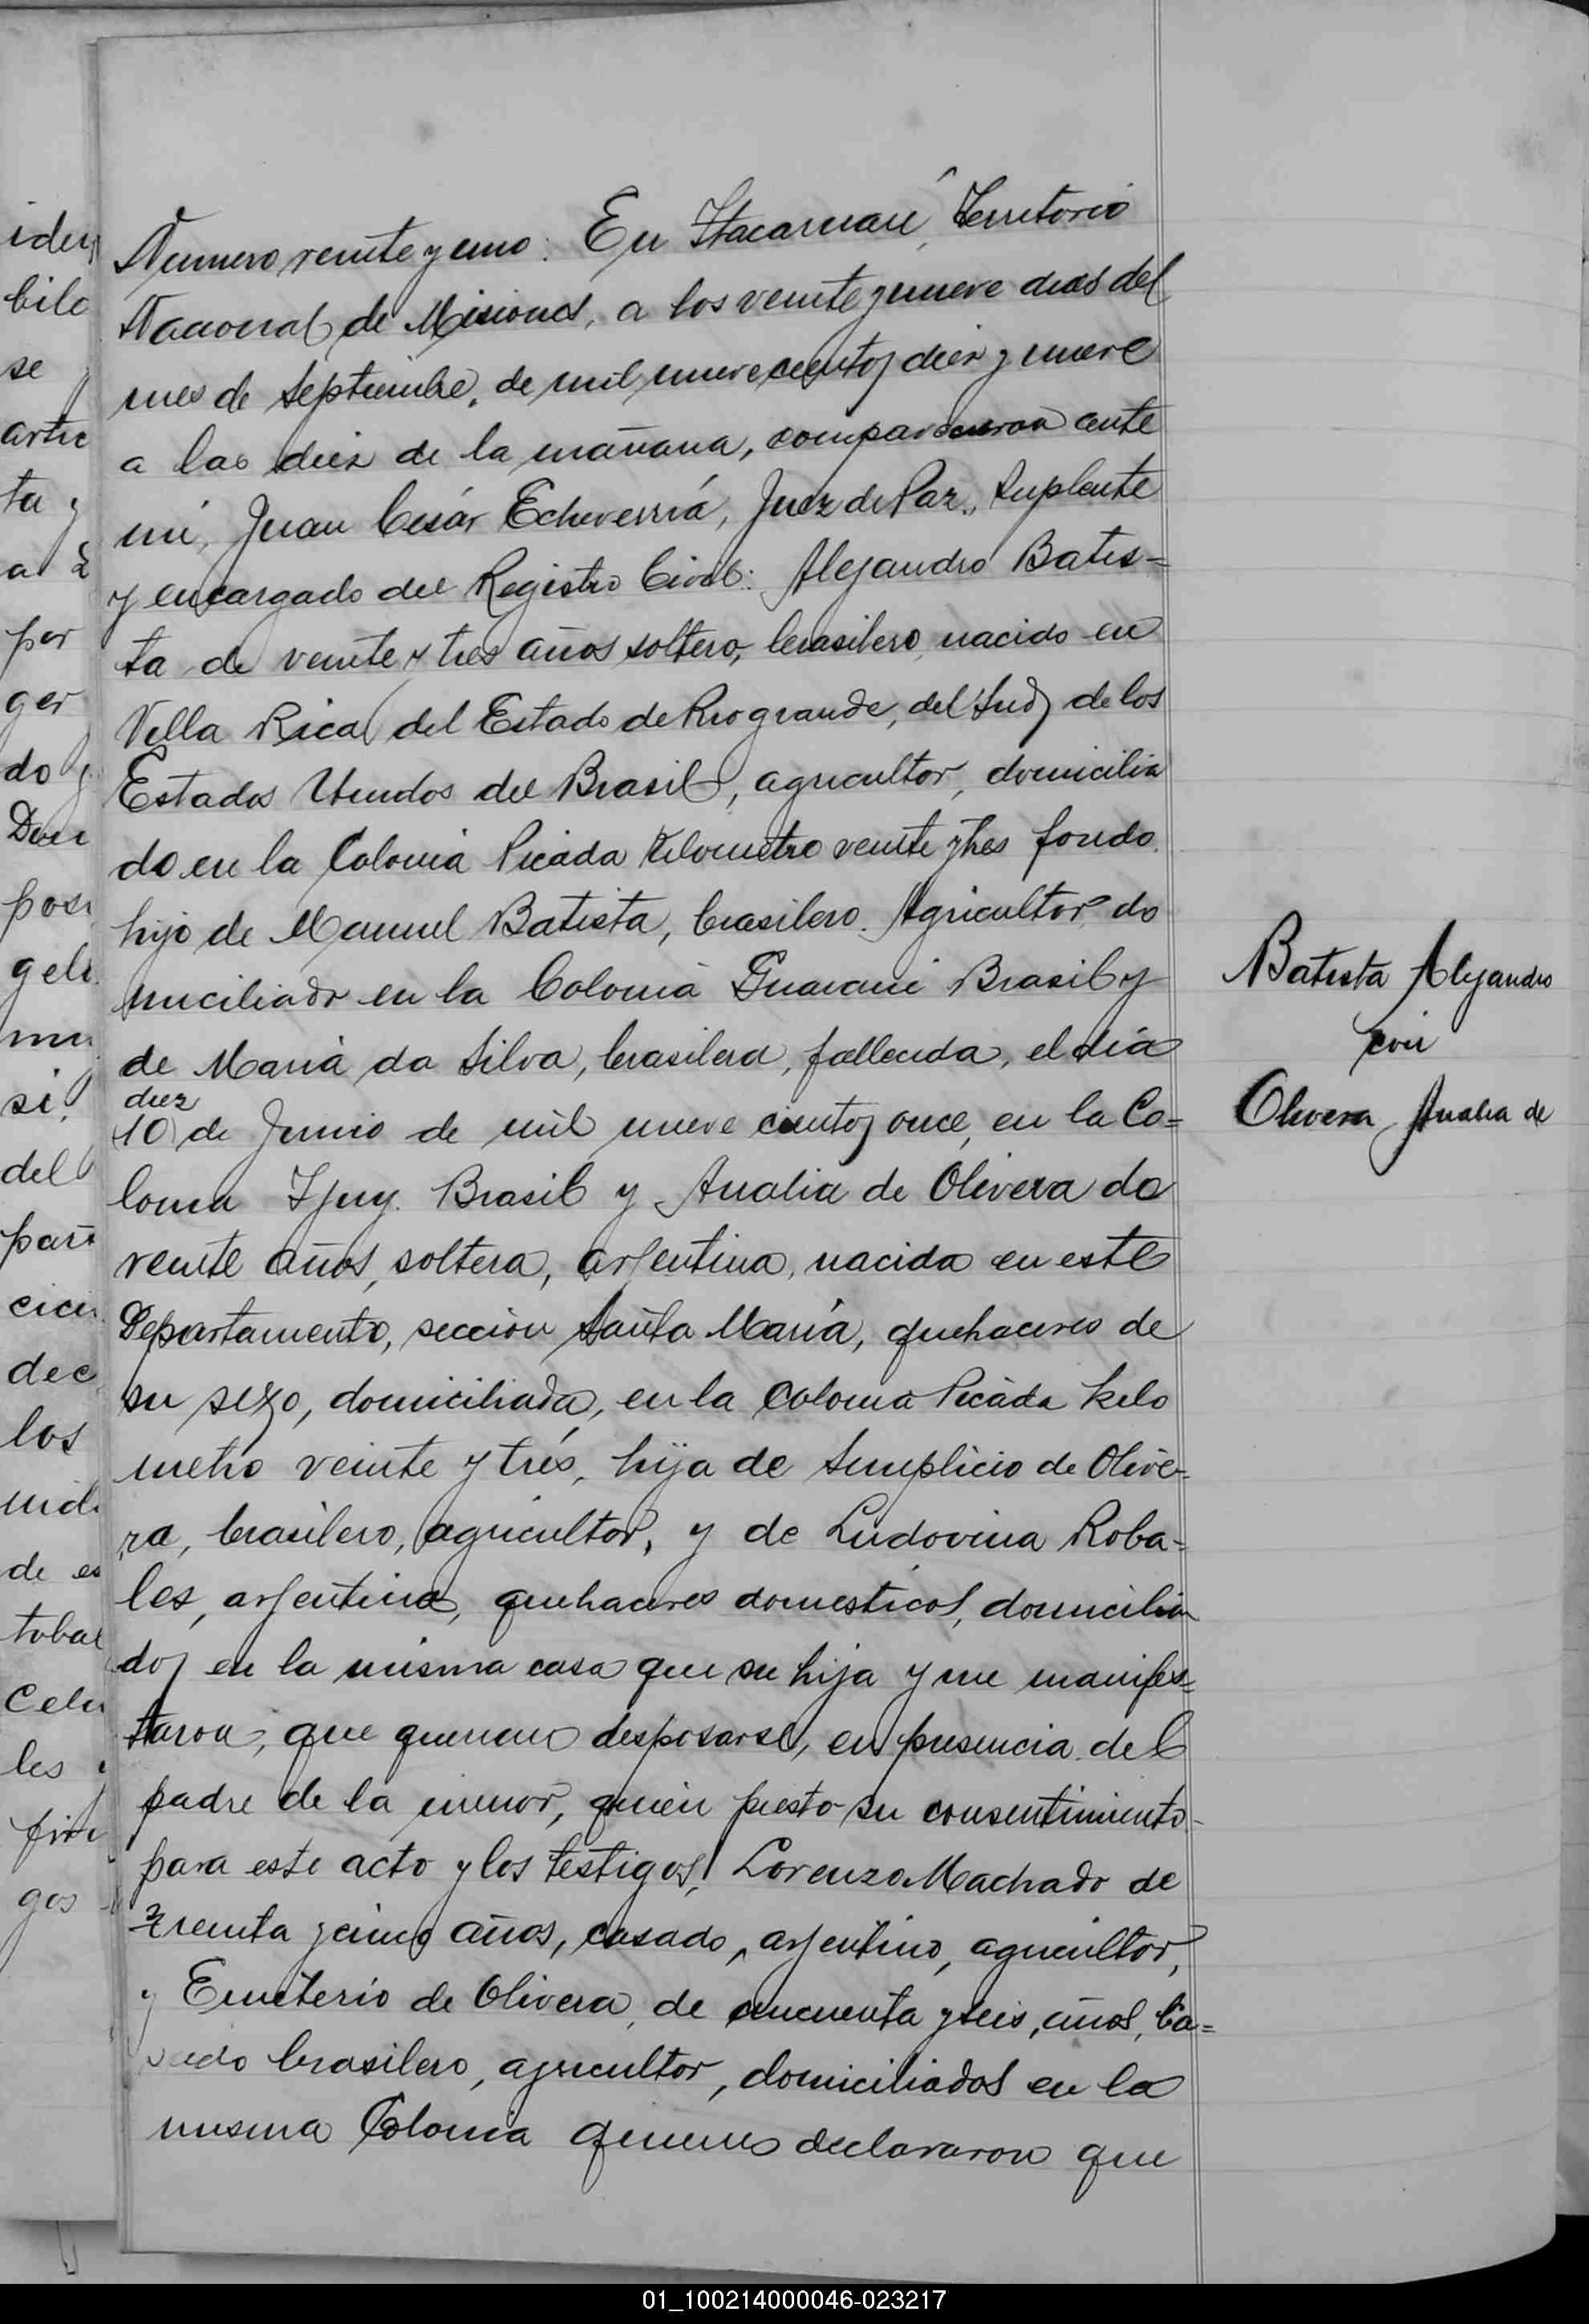 Numero veinte y uno: En Itacaruaré, Territorio
Nacional de Misiones, a los veinte y nueve dias del
mes de Septiembre, de mil nuevecientos diez y nueve
a las diez de la mañana, comparecieron ante
mi, Juan César Echeverría, Juez de Paz, Suplente
y encargado del Registro Civil: Alejandro Batis=
ta de veinte y tres años soltero, brasilero, nacido en
Villa Rica del Estado de Riogrande, del Sud, de los
Estados Unidos del Brasil, agricultor, domicilia
do en la Colonia Picada Kilometro veinte y tres fondo.
hijo de Manuel Batista, brasilero. Agricultor, do
miciliado en la Colonia Guarani Brasil y
de Maria da Silva, brasilera, fallecida, el dia
diez
(10) de Junio de mil nueve cientos once, en la Co=
lonia Ijuy. Brasil y Analia de Olivera de
veinte años, soltera, arjentina, nacida en este
Departamento, sección Santa María, quehaceres de
su sexo, domiciliada, en la Colonia Picada kilo
metro veinte y trés, hija de Simplicio de Olive=
ra, brasilero, agricultor, y de Ludovina Roba=
les, arjentina, quehaceres domesticos, domicilia
dos en la misma casa que su hija y me manifes=
taron, que querian desposarse, en presencia del
padre de la menor, quien presto su consentimiento
para este acto y los testigos, Lorenzo Machado de
treinta y cinco años, casado, arjentino, agricultor,
y Emeterio de Olivera, de cincuenta y seis, años, Ca=
sado brasilero, agricultor, domiciliados en la
misma Colonia quienes declararon que
Batista Alejandro
con
Olivera, Analia de
iden
bile
se
artic
ta y
a
por
ger
do y
posi
geli
mi
si,
del
pari
cici
dec
los
de es
tobal
Cele
les
firi
gos
01_100214000046-023217